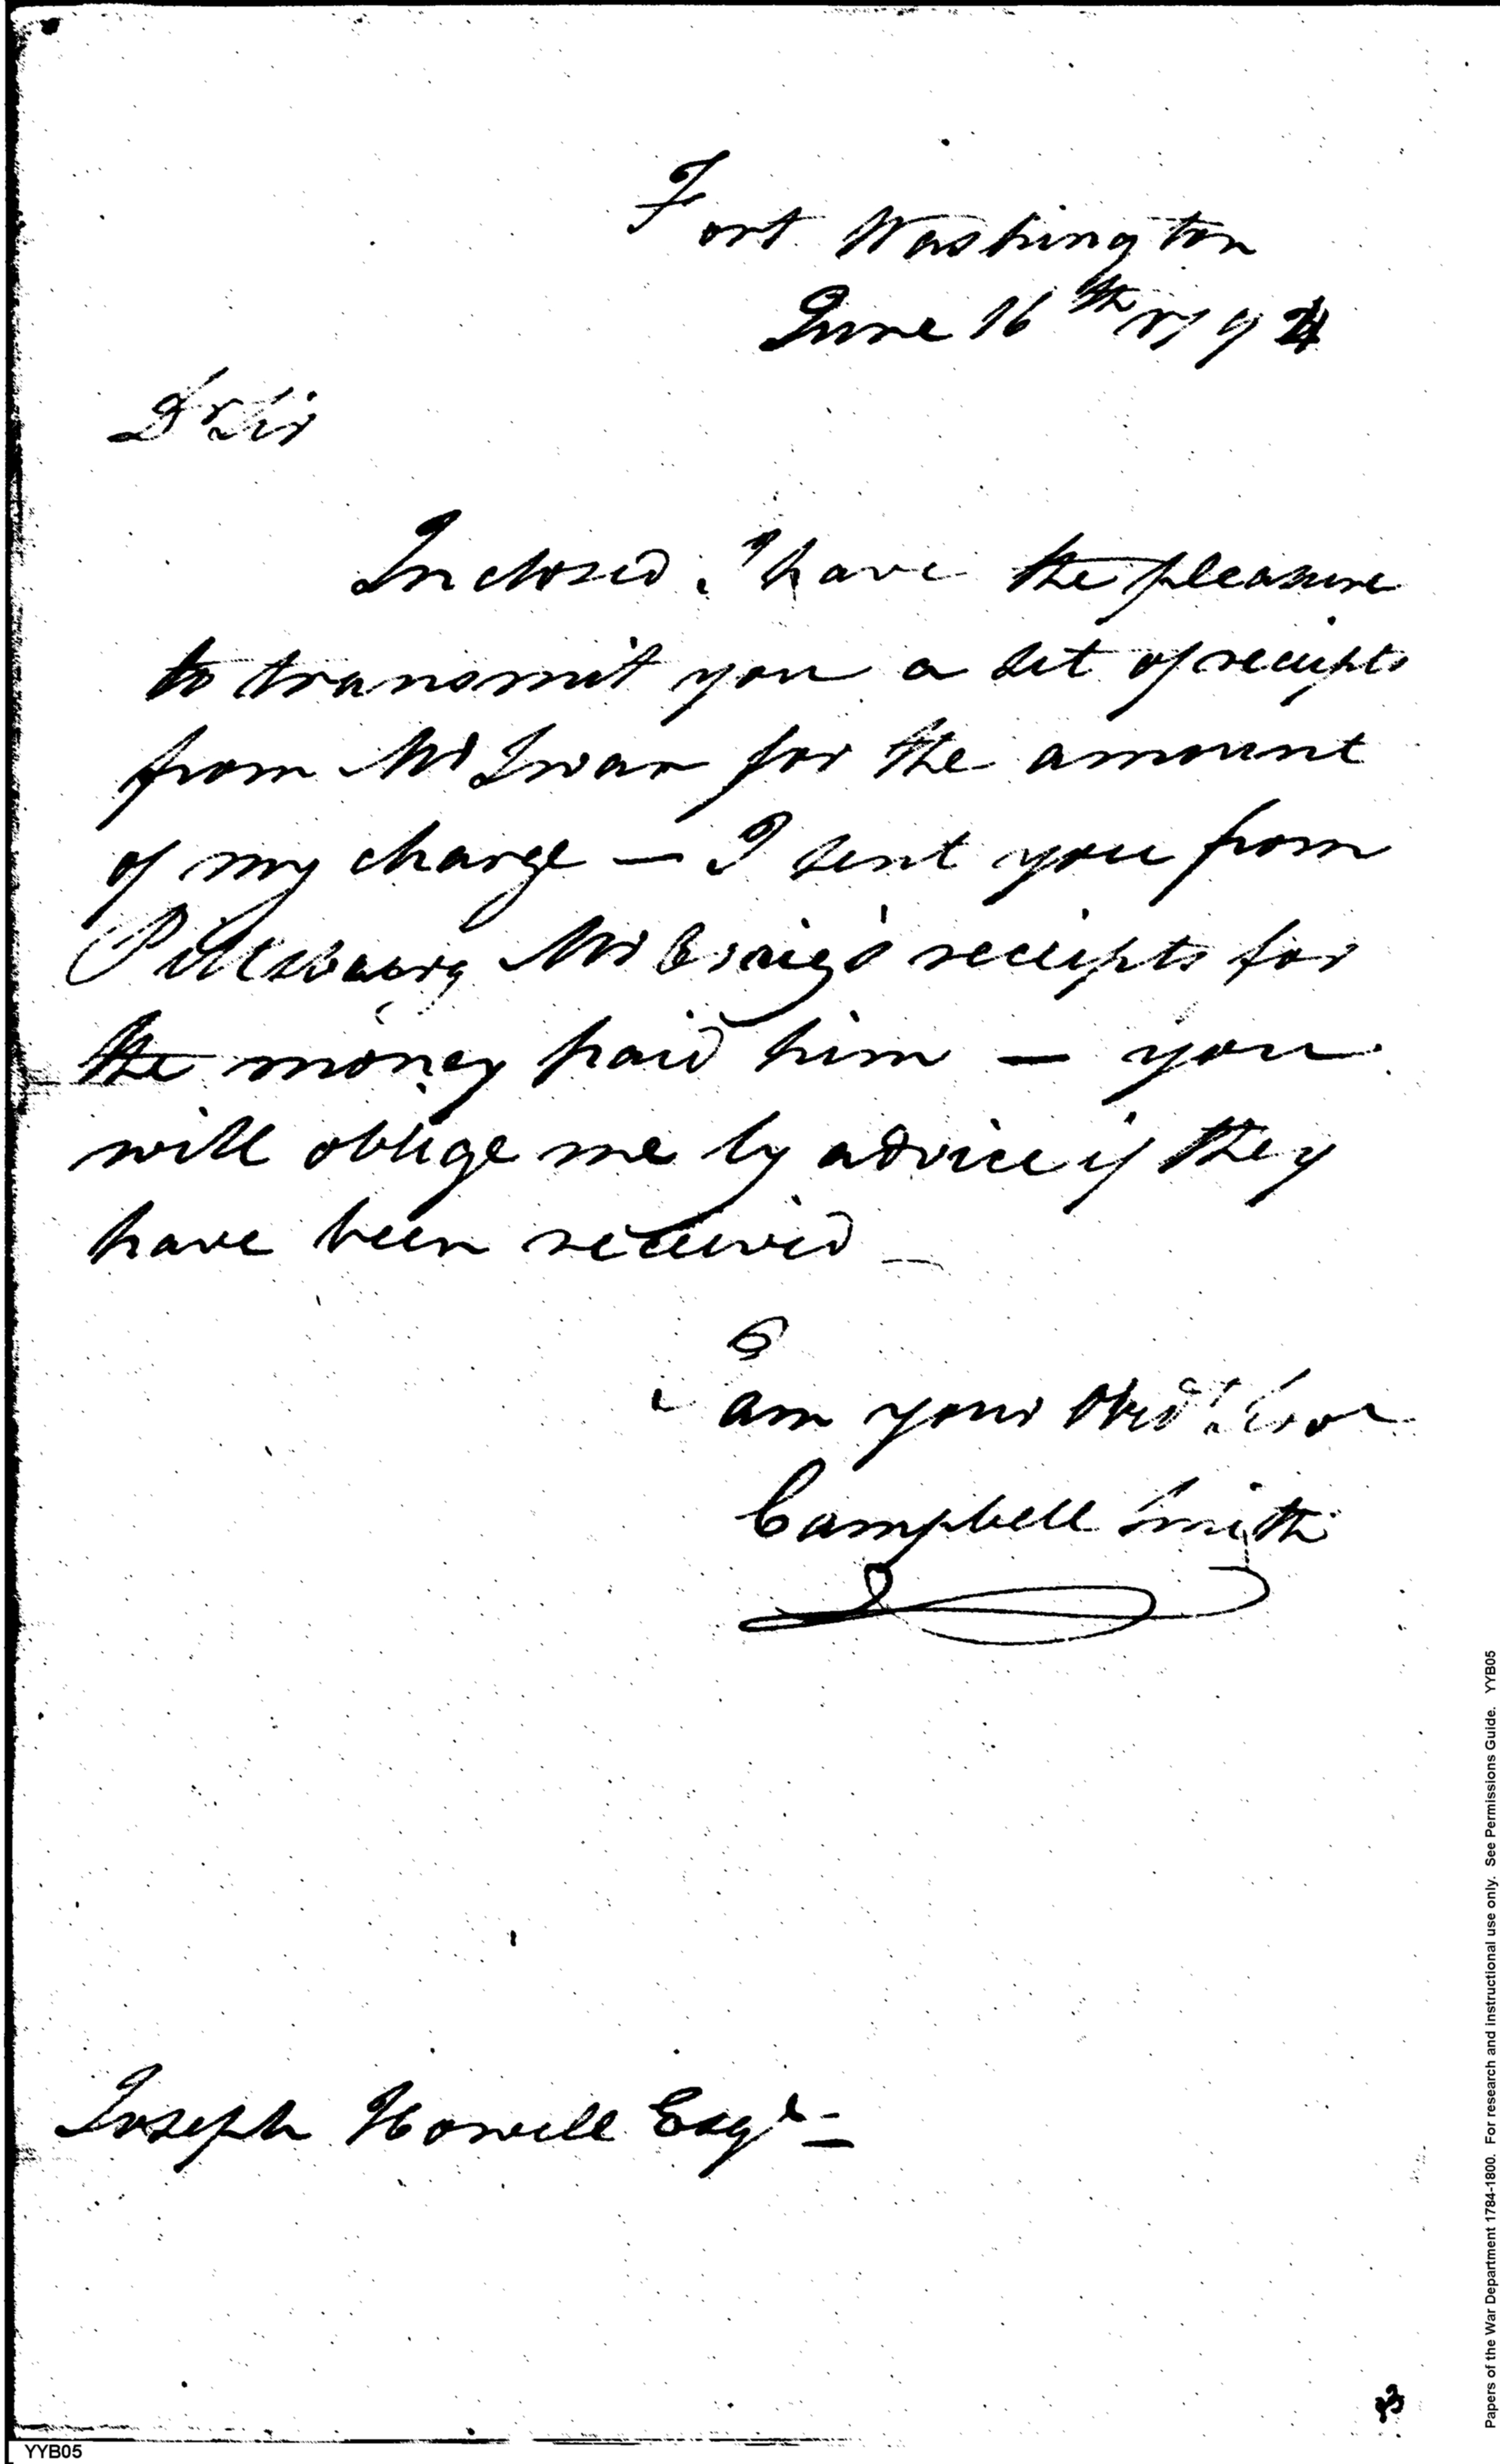 Fort Washington
June 16th 1794
Dr Sir
Inclosed I have the pleasure
to transmit you a set of receipts
from Mr Swan for the amount
of my charge — I sent you from
Pittsburg Mr Craig's receipts for
the money paid him — you
will oblige me by advice if they
have been received —
I
am your Obdt Serv
Campbell Smith
Joseph Howell Esqr
YYB05
Papers of the War Department 1784-1800. For research and instructional use only. See Permissions Guide. YYB05